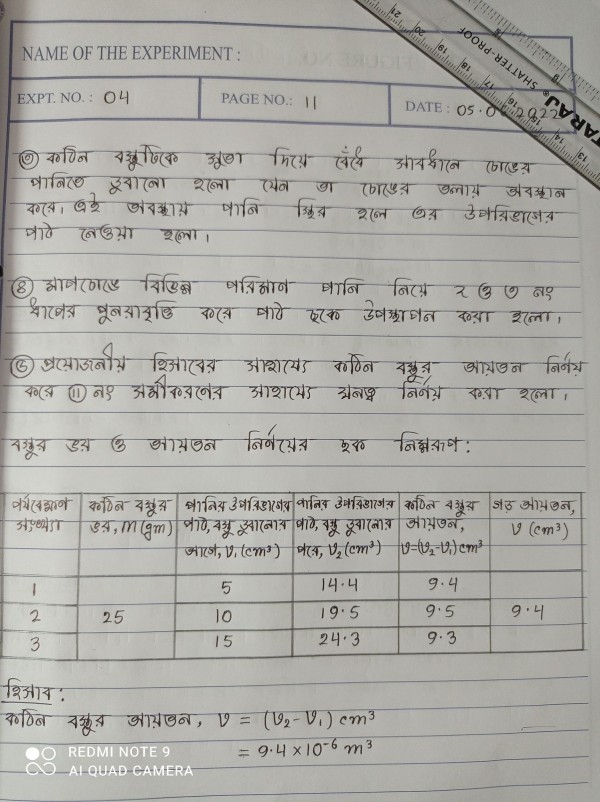 NAME OF THE EXPERIMENT :
EXPT. NO. : 04 PAGE NO.: 11 DATE : 05.0 2022
SHATTER-PROOF
TARAJ
③ কঠিন বস্তুটিকে সুতা দিয়ে বেঁধে সাবধানে চোঙের
পানিতে ডুবানো হলো যেন তা চোঙের তলায় অবস্থান
করে। এই অবস্থায় পানি স্থির হলে এর উপরিভাগের
পাঠ নেওয়া হলো।
④ মাপচোঙে বিভিন্ন পরিমাণ পানি নিয়ে ২ ও ৩ নং
ধাপের পুনরাবৃত্তি করে পাঠ ছকে উপস্থাপন করা হলো।
⑤ প্রয়োজনীয় হিসাবের সাহায্যে কঠিন বস্তুর আয়তন নির্ণয়
করে ⑪ নং সমীকরণের সাহায্যে ঘনত্ব নির্ণয় করা হলো।
বস্তুর ভর ও আয়তন নির্ণয়ের ছক নিম্নরূপ:
পর্যবেক্ষণ কঠিন বস্তুর পানির উপরিভাগের পানির উপরিভাগের কঠিন বস্তুর গড় আয়তন,
সংখ্যা ভর, m (gm) পাঠ, বস্তু ডুবানোর পাঠ, বস্তু ডুবানোর আয়তন, V (cm³)
আগে, V₁ (cm³) পরে, V₂ (cm³) V=(V₂-V₁) cm³
1 5 14.4 9.4
2 25 10 19.5 9.5 9.4
3 15 24.3 9.3
হিসাব :
কঠিন বস্তুর আয়তন, V = (V₂ - V₁) cm³
= 9.4 × 10⁻⁶ m³
REDMI NOTE 9
AI QUAD CAMERA